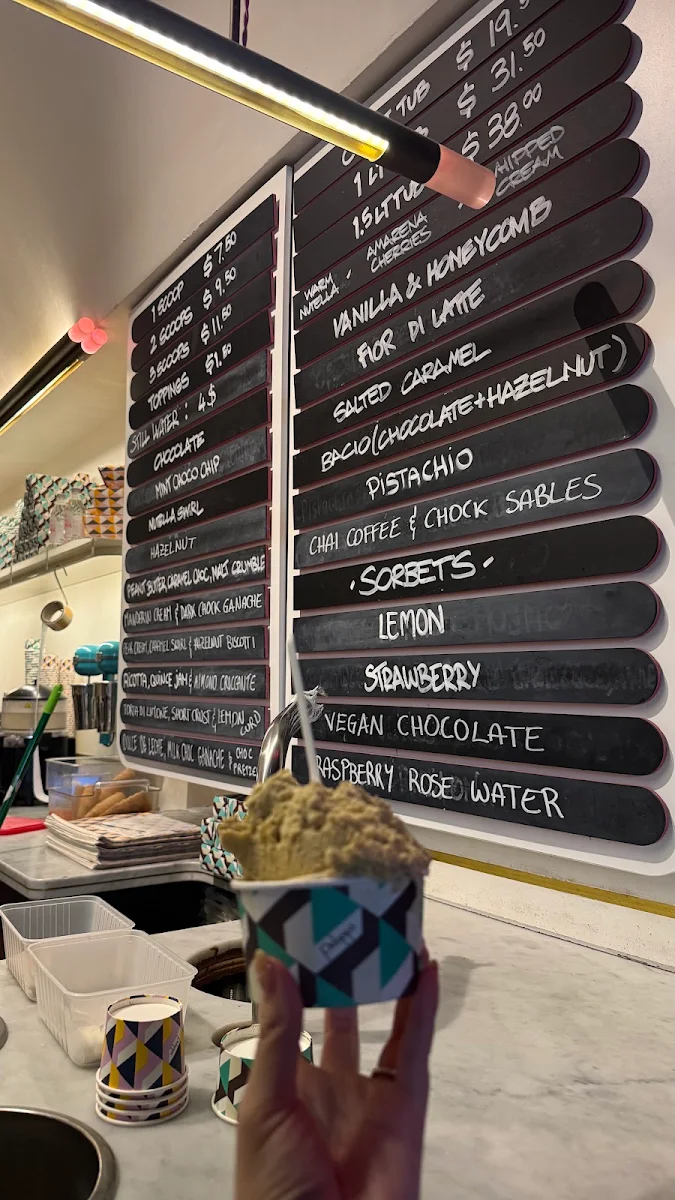 1 SCOOP $7.50
2 SCOOPS $9.50
3 SCOOPS $11.50
TOPPINGS $1.50
STILL WATER : 4$
CHOCOLATE
MINT CHOCO CHIP
NUTELLA SWIRL
HAZELNUT
PEANUT BUTTER, CARAMEL CHOC, MALT CRUMBLE
MANDARIN CREAM & DARK CHOCK GANACHE
CARAMEL SWIRL & HAZELNUT BISCOTTI
RICOTTA, QUINCE JAM & ALMOND CROCCANTE
TORTA DI LIMONE, SHORT CRUST & LEMON CURD
DOLCE DE LECHE, MILK CHOC GANACHE & CHOC PRETZEL
TUB $ 19.5
$ 31.50
1.5 LT TUB $ 38.00
WARM NUTELLA - AMARENA CHERRIES WHIPPED CREAM
VANILLA & HONEYCOMB
FIOR DI LATTE
SALTED CARAMEL
BACIO (CHOCOLATE+HAZELNUT)
PISTACHIO
CHAI COFFEE & CHOCK SABLES
·SORBETS·
LEMON
STRAWBERRY
VEGAN CHOCOLATE
RASPBERRY ROSE WATER